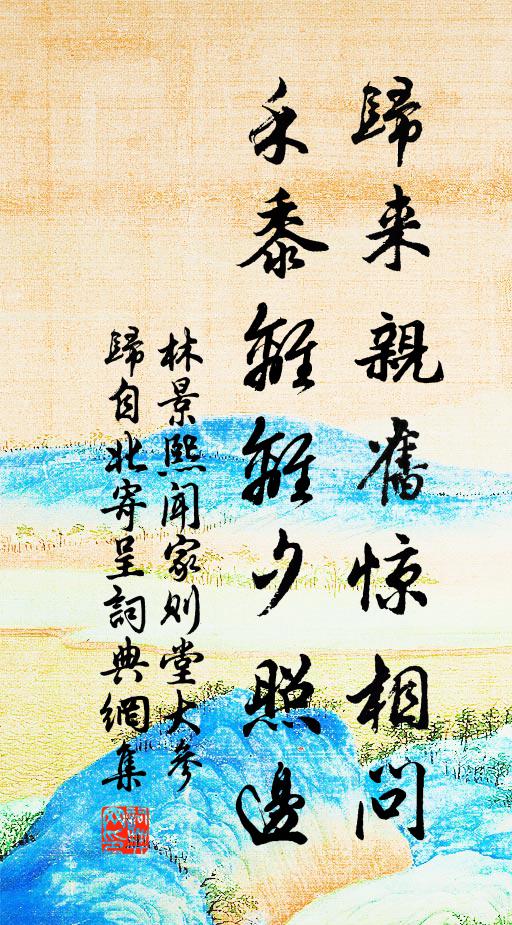 歸来親舊惊相問
禾黍離離夕照邊
林景熙聞家則堂大參
歸自北寄呈詞典網集